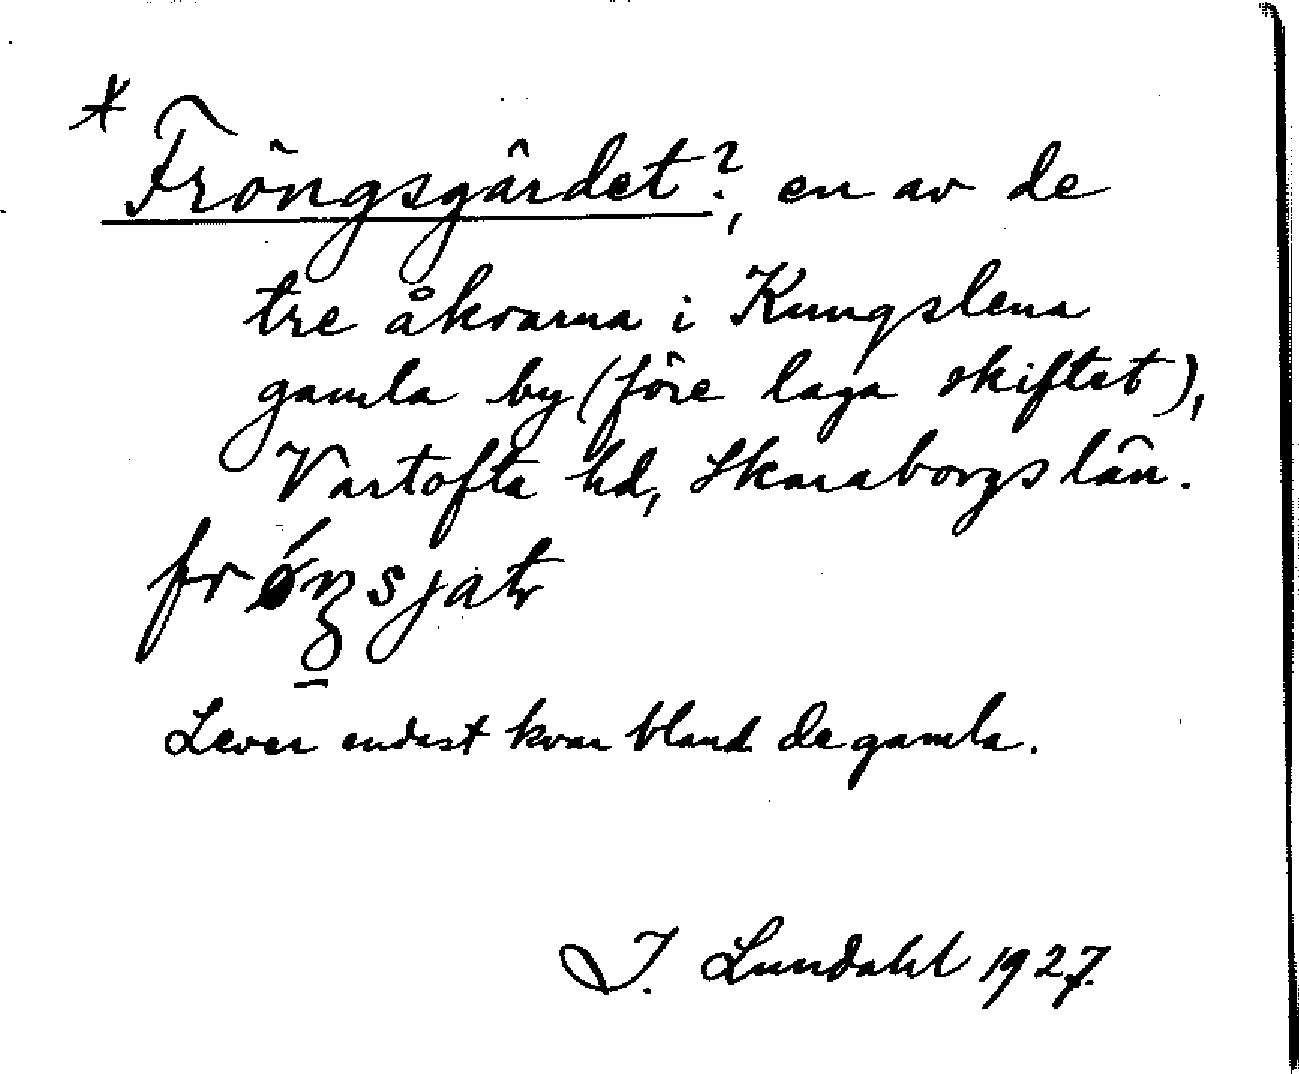 * Fröngsgärdet?, en av de
tre åkrarna i Kungslena
gamla by (före laga skiftet),
Vartofta hd, Skaraborgs län.
Lever endast kvar bland de gamla.
I. Lundahl 1927.